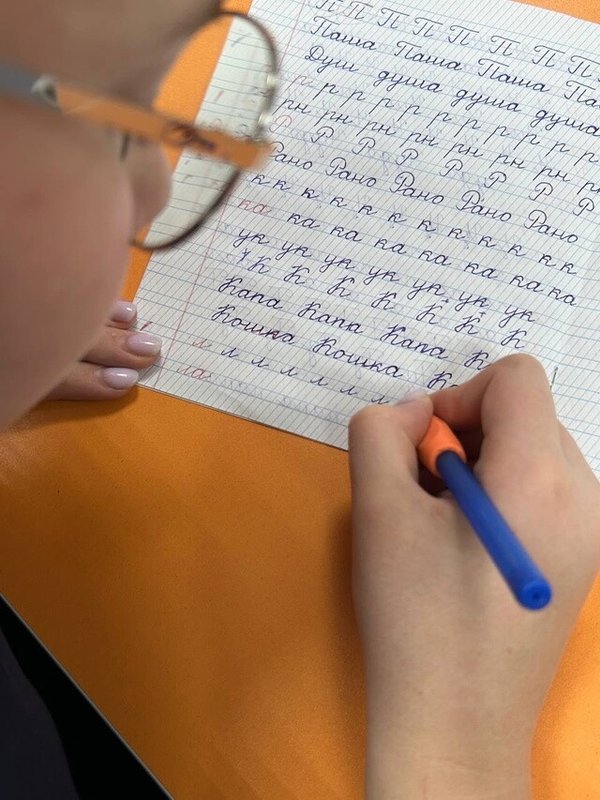 П П П П П П П П
Паша Паша Паша Па
Душ душа душа душа
р р р р р р р р р р р
рн рн рн рн рн рн рн рн
Р Р Р Р Р Р Р Р
Рано Рано Рано Рано Рано
к к к к к к к к к к
ка ка ка ка ка ка ка ка
ук ук ук ук ук ук ук
К К К К К К К
Капа Капа Капа К
Кошка Кошка Ко
л л л л л л л
ла